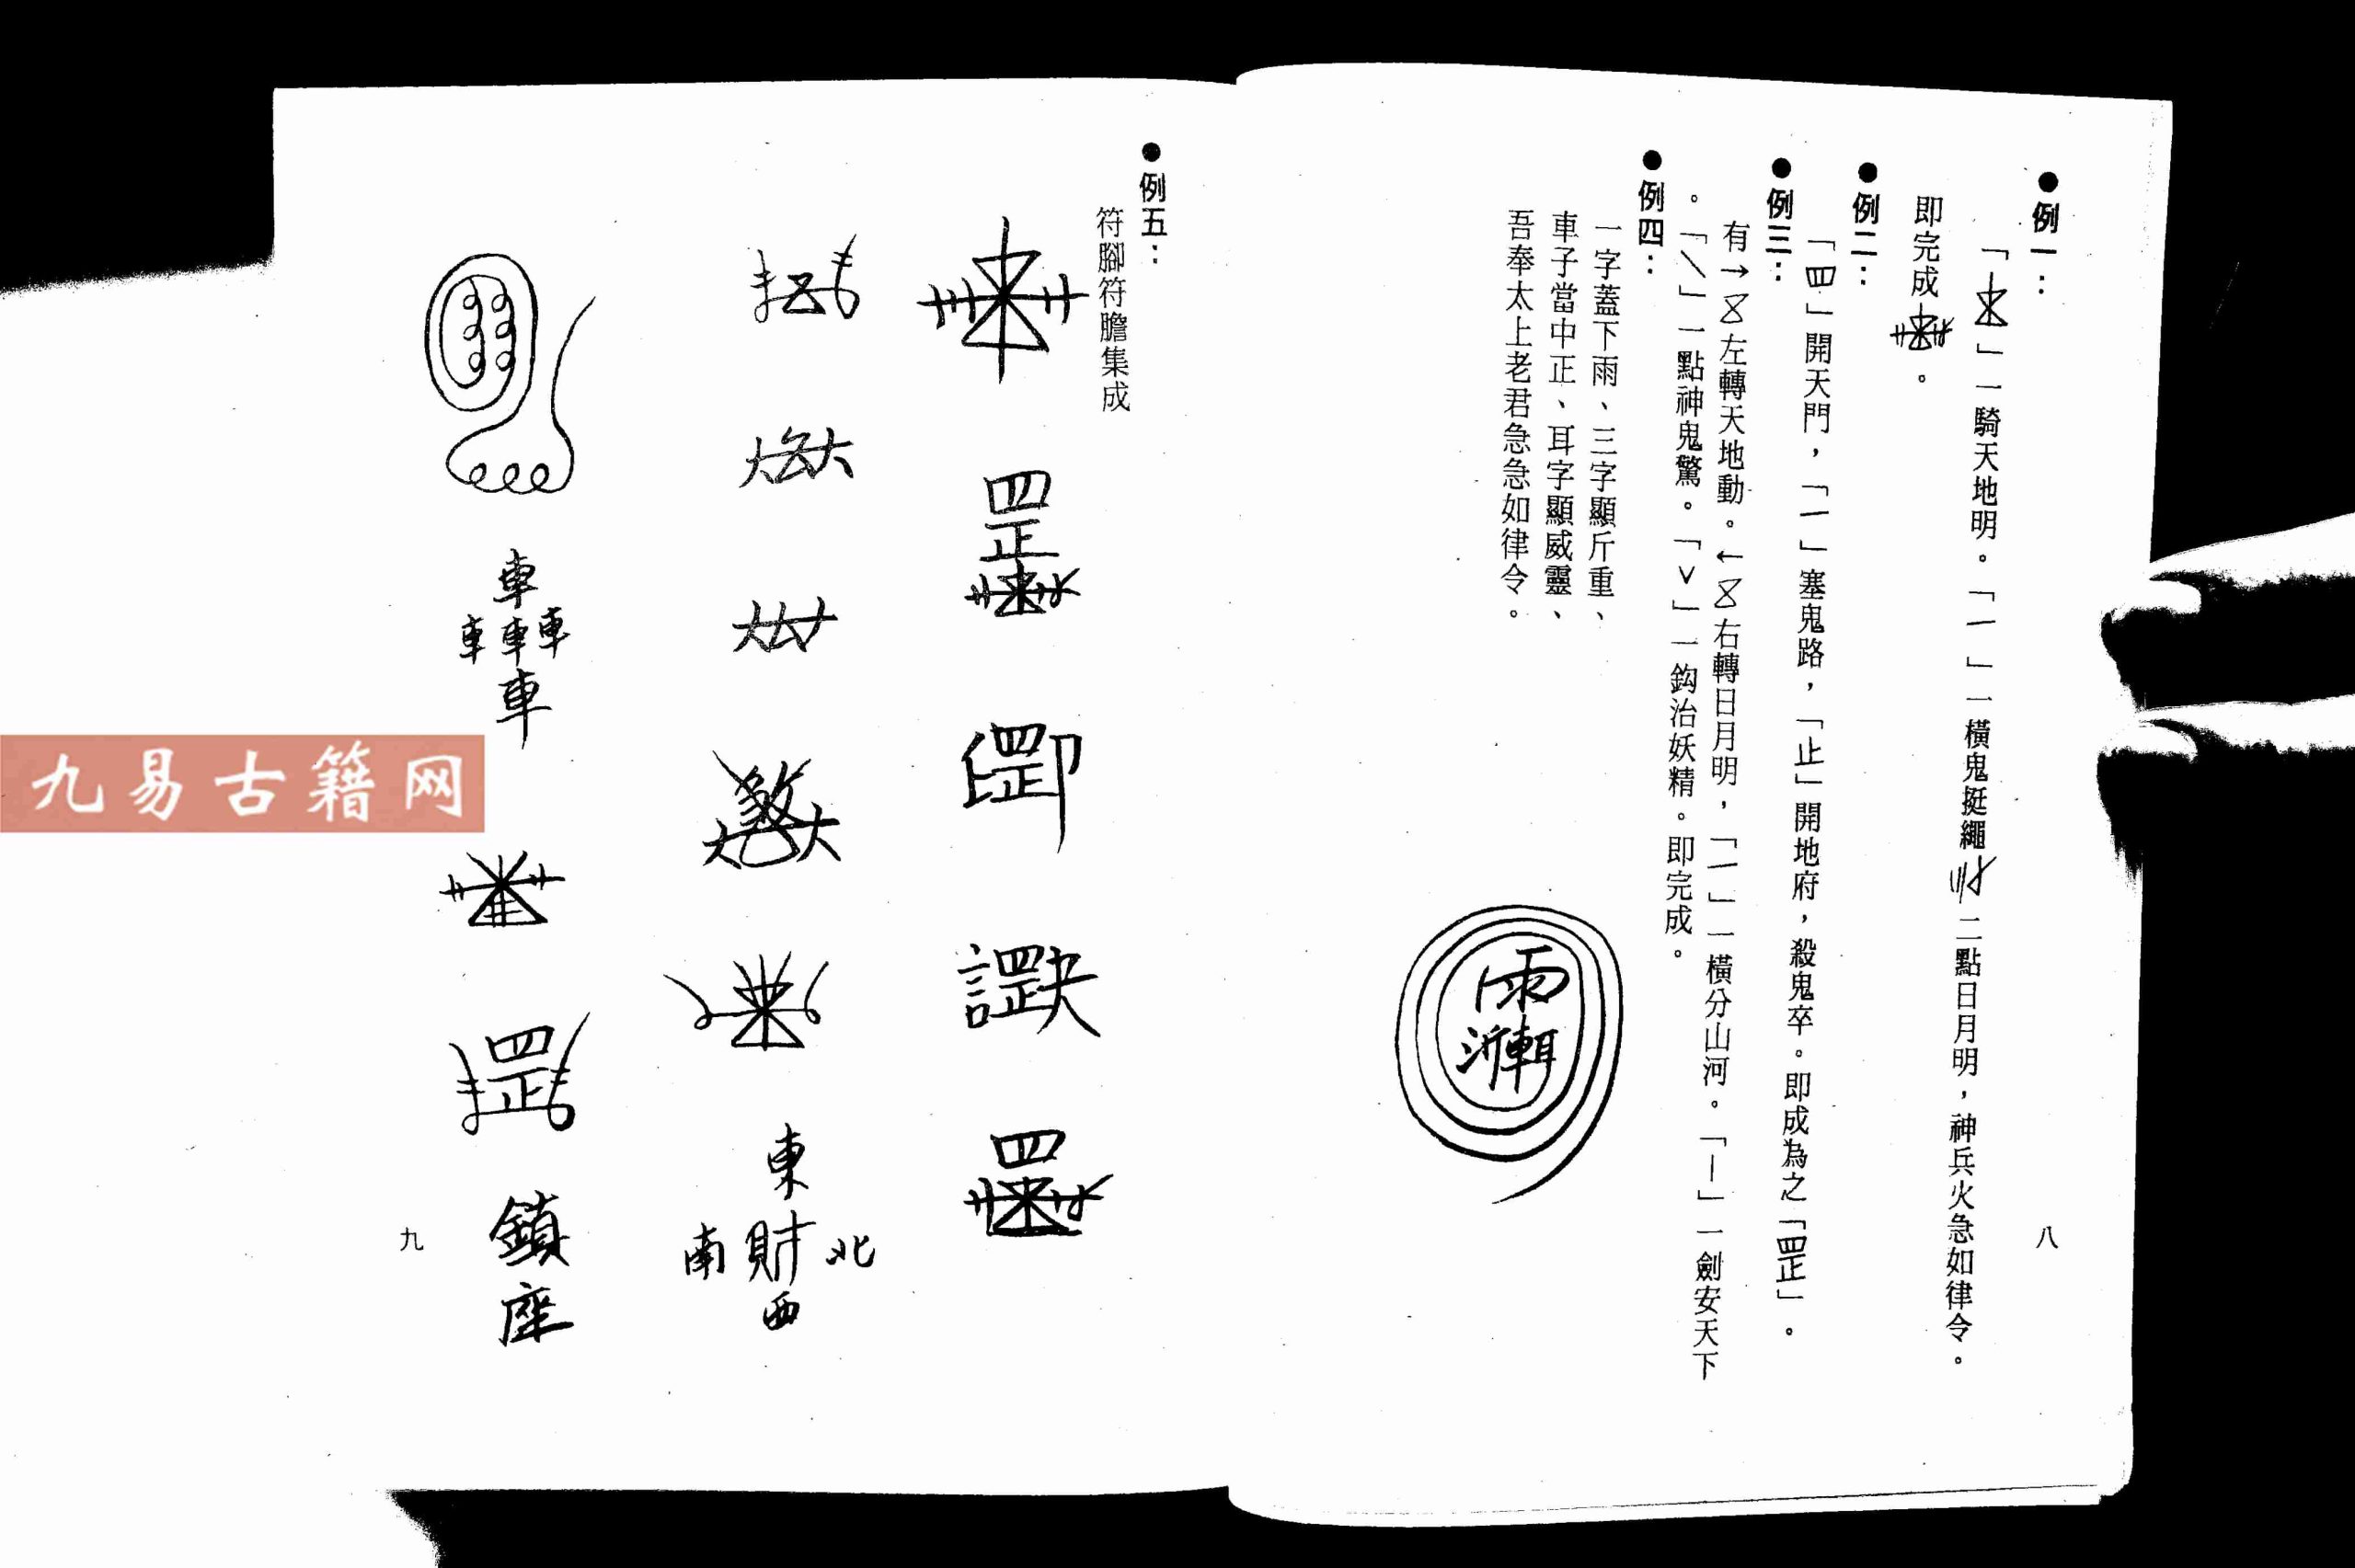 ●例一：
「」一騎天地明。「一」一橫鬼挺繩二點日月明，神兵火急如律令。
即完成。
●例二：
「四」開天門，「一」塞鬼路，「止」開地府，殺鬼卒。即成為之「罡」。
●例三：
有→左轉天地動。←右轉日月明，「一」一橫分山河。「｜」一劍安天下
。「＼」一點神鬼驚。「∨」一鈎治妖精。即完成。
●例四：
一字蓋下雨、三字顯斤重、
車子當中正、耳字顯威靈、
吾奉太上老君急急如律令。
雨
八
●例五：
符腳符膽集成
罡
罡
東
南 財 北
西
車
車 車 車
車
罡
鎮座
九
九易古籍网